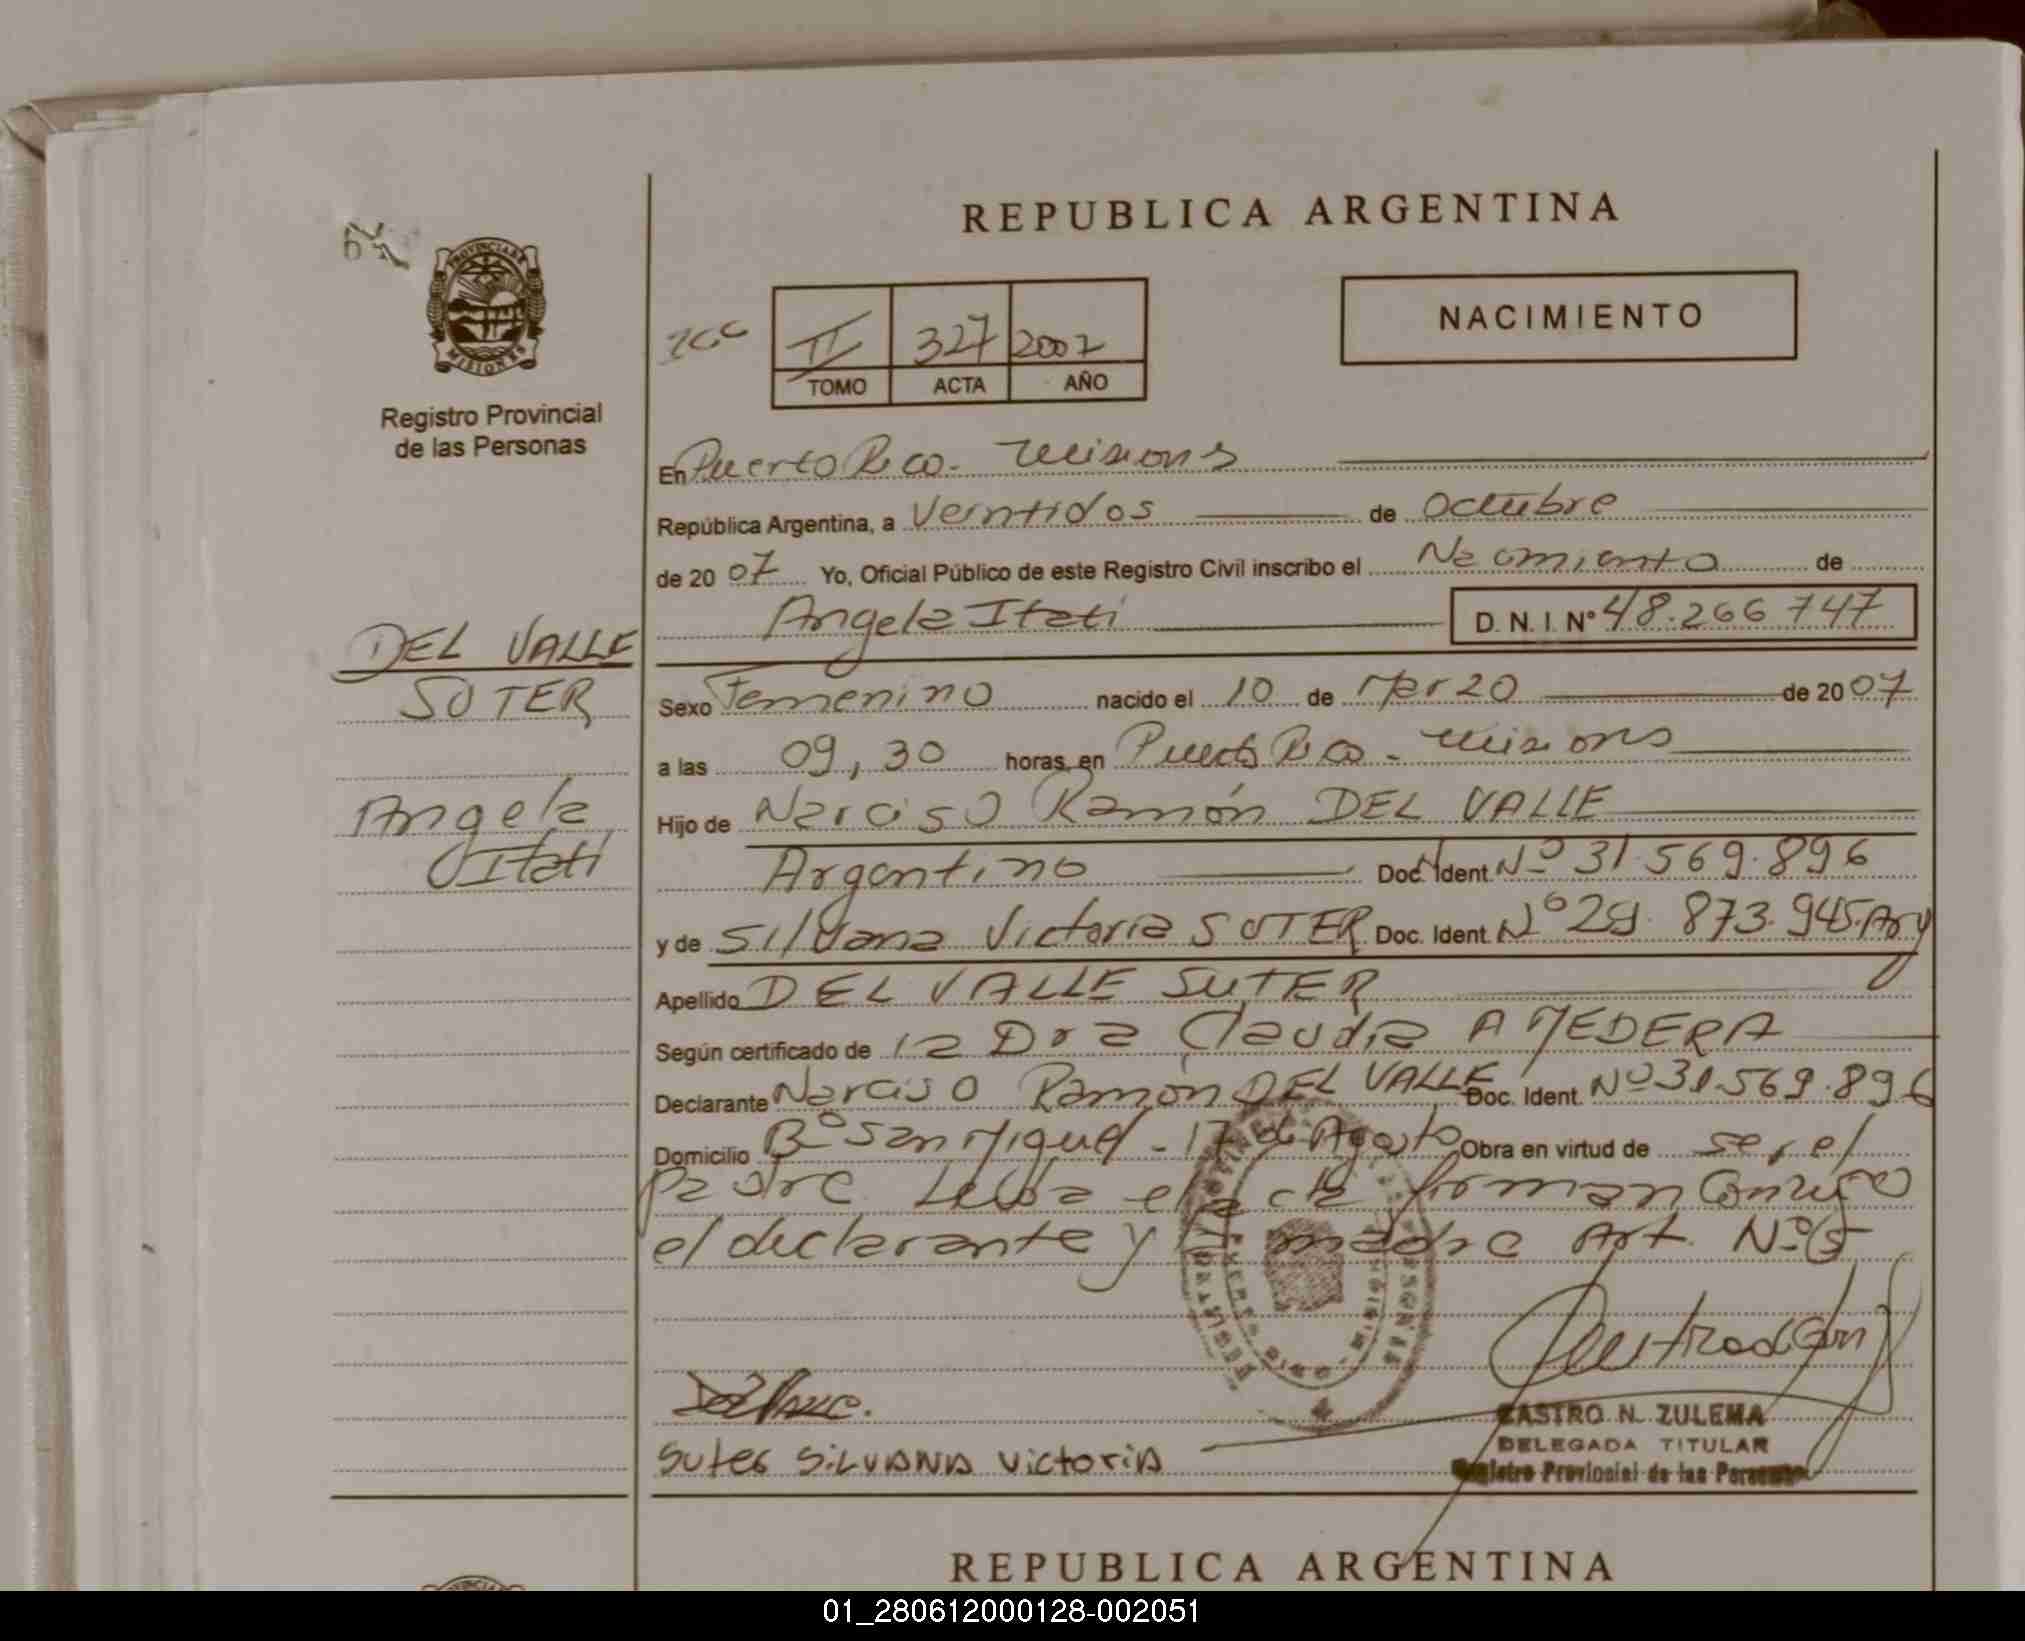 REPUBLICA ARGENTINA
PROVINCIA DE
MISIONES
NACIMIENTO
II 327 2007
TOMO ACTA AÑO
Registro Provincial
de las Personas
En Puerto Rico - Misiones
República Argentina, a Veintidos de Octubre
de 20 07 Yo, Oficial Público de este Registro Civil inscribo el Nacimiento de
Angela Itati D.N.I. Nº 48.266747
DEL VALLE
SUTER
Angela
Itati
Sexo Femenino nacido el 10 de Marzo de 20 07
a las 09,30 horas en Puerto Rico - Misiones
Hijo de Narciso Ramón DEL VALLE
Argentino Doc. Ident. Nº 31.569.896
y de Silvana Victoria SUTER Doc. Ident. Nº 29.873.945. Arg
Apellido DEL VALLE SUTER
Según certificado de la Dra Claudia A MEDERA
Declarante Narciso Ramón DEL VALLE Doc. Ident. Nº 31.569.896
Domicilio Bº San Miguel - 17 de Agosto Obra en virtud de ser el
padre Leida el acta firman Conmigo
el declarante y la madre Art. Nº
Suter SiLVANA VictoriA
CASTRO N. ZULEMA
DELEGADA TITULAR
Registro Provincial de las Personas
REPUBLICA ARGENTINA
01_280612000128-002051